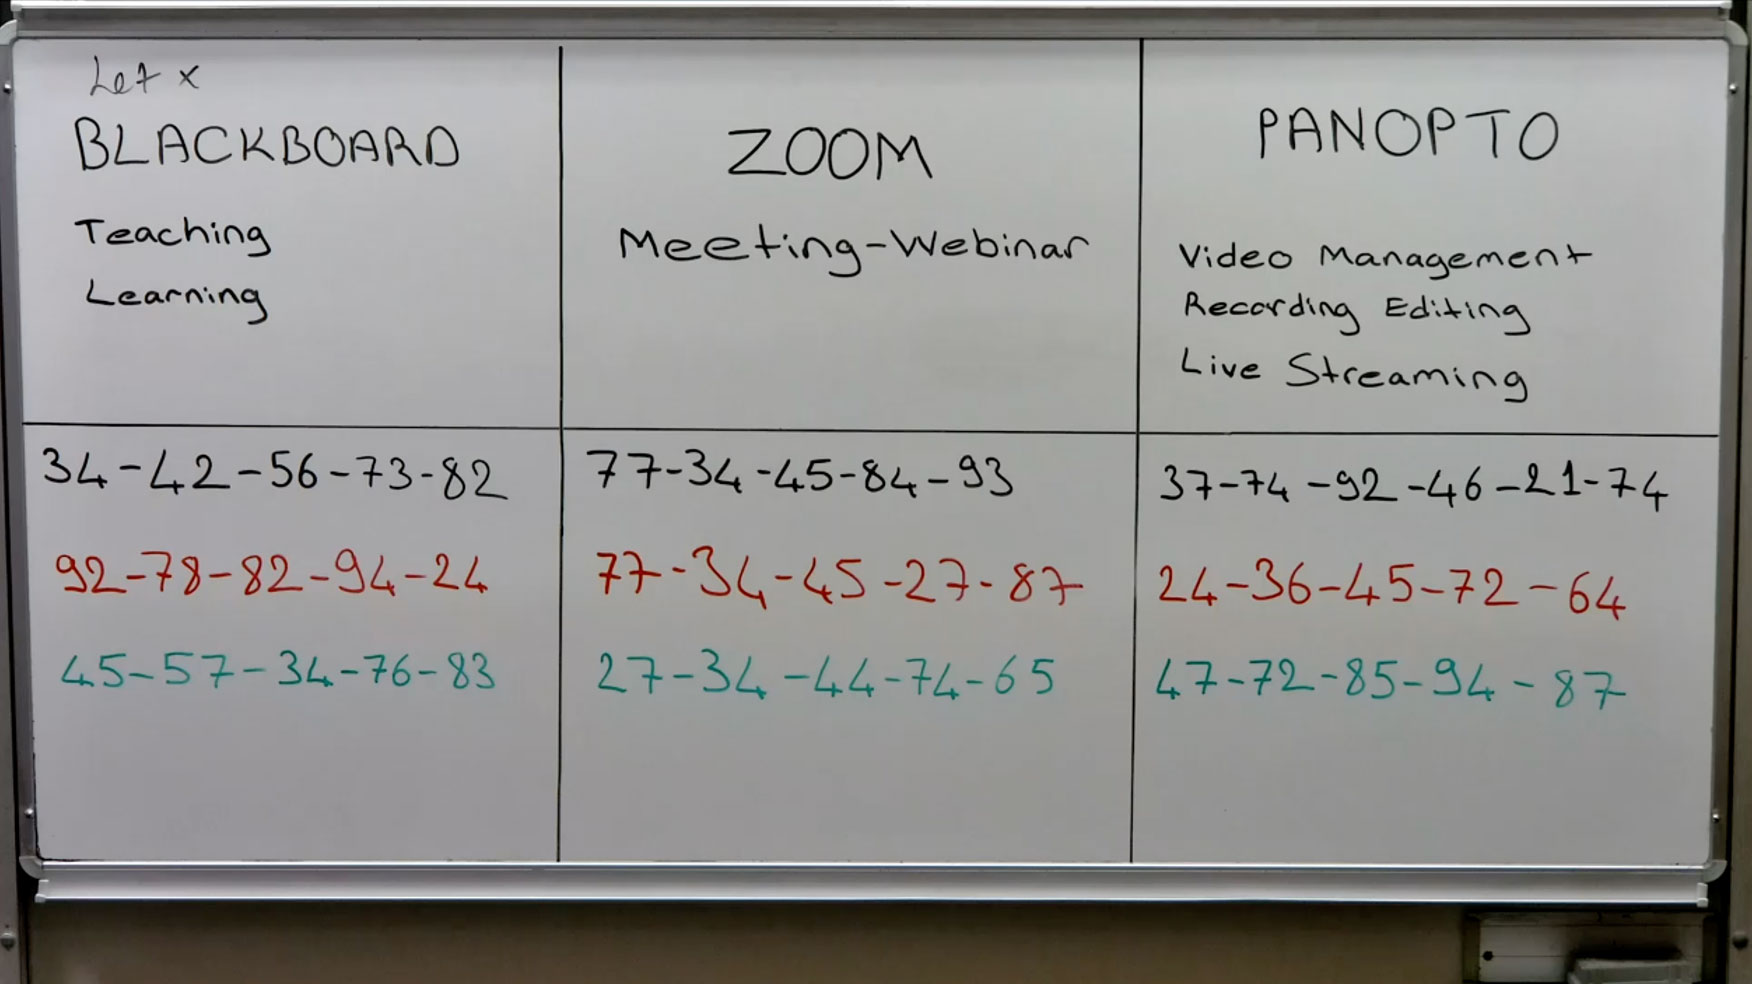 Let x
BLACKBOARD
Teaching
Learning
34-42-56-73-82
92-78-82-94-24
45-57-34-76-83
ZOOM
Meeting-Webinar
77-34-45-84-93
77-34-45-27-87
27-34-44-74-65
PANOPTO
Video Management
Recording Editing
Live Streaming
37-74-92-46-21-74
24-36-45-72-64
47-72-85-94-87